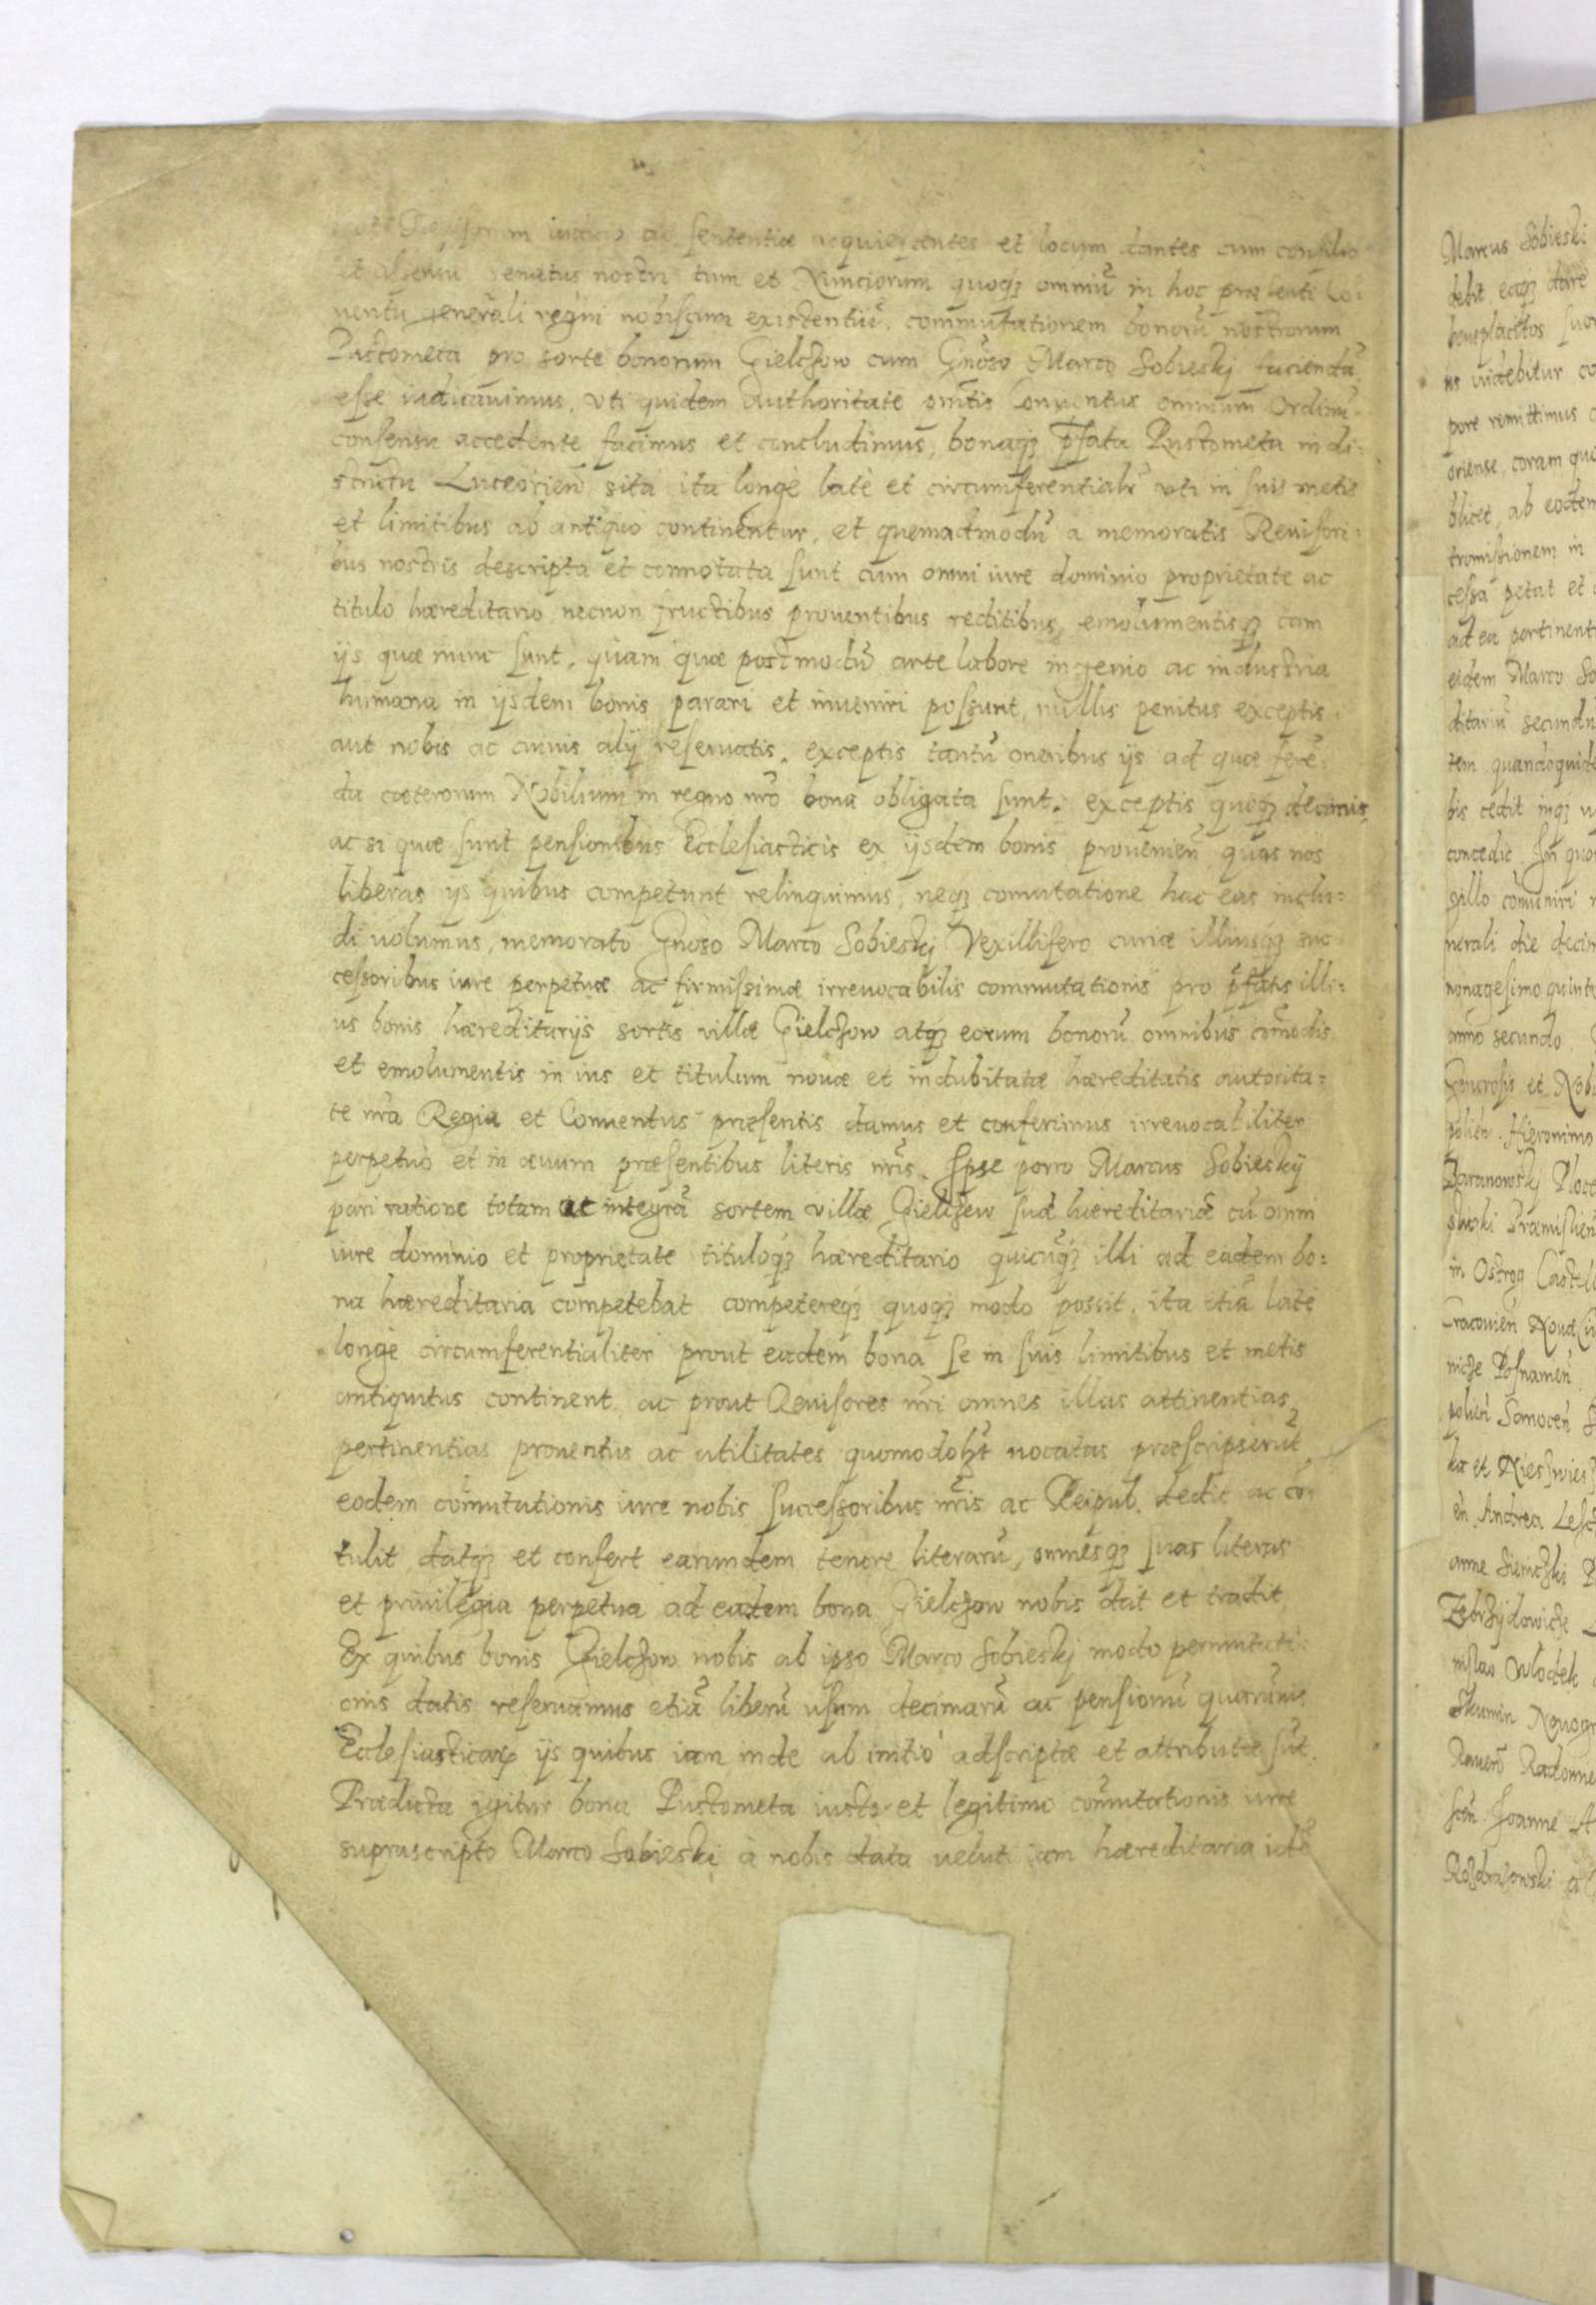 Revisorum iudicio ac sententiæ acquiescentes et locum dantes cum consilio
et assensu senatus nostri tum et Nunciorum quoqȝ omniũ in hoc præsenti Co:
uentu generali regni nobiscum existentiũ. commutationem bonorũ nostrorum
Pustometa pro sorte bonorum Gielchow cum Gnoso Marco Sobieskj faciendã
esse iudicauimus, vti quidem authoritate pntis Conuentus omnium Ordinũ
consensu accedente facimus et concludimus, bonaqȝ pfata Pustometa in di:
strictu Luceorien sita ita longè latè et circumferentialr vti in suis metis
et limitibus ab antiquo continentur, et quemadmodũ a memoratis Reuisori:
bus nostris descripta et connotata sunt cum omni iure dominio proprietate ac
titulo hæreditario necnon fructibus prouentibus redditibus, emolumentisqȝ tam
ijs quæ nunc sunt, quàm quæ postmodũ arte labore ingenio ac industria
humana in ijsdem bonis parari et inueniri possunt, nullis penitus exceptis
aut nobis ac cuiuis alij reseruatis. exceptis tantũ oneribus ijs ad quæ ferẽ:
da cæterorum Nobilium in regno nrõ bona obligata sunt. exceptis quoqȝ decimis
ac si quæ sunt pensionibus Ecclesiasticis ex ijsdem bonis prouenien quas nos
liberas ijs quibus competunt relinquimus, neqȝ comutatione hac eas inclu:
di uolumus, memorato Gnoso Marco Sobieskj Vexillifero curiæ illiusqȝ suc
cessoribus iure perpetuæ ac firmissimæ irreuocabilis commutationis pro pfatis illi:
us bonis hæreditarijs sortis villæ Gielchow atqȝ eorum bonorũ omnibus cõmodis
et emolumentis in ius et titulum nouæ et indubitatæ hæreditatis autorita:
te nrã Regia et Conuentus præsentis damus et conferimus irreuocabiliter
perpetuò et in æuum præsentibus literis nrĩs. Ipse porro Marcus Sobieskij
pari ratione totam et integrã sortem villæ Gielchew suæ hæreditariæ cũ omni
iure dominio et proprietate tituloqȝ hæreditario quicũqȝ illi ad eadem bo:
na hæreditaria competebat competereqȝ quoqȝ modo possit, ita etiã latè
longè circumferentialiter prout eadem bona se in suis limitibus et metis
antiquitus continent ac prout Reuisores nrĩ omnes illas attinentias
pertinentias prouentus ac utilitates quomodolȝt uocatas præscripserũt
eodem cõmutationis iure nobis successoribus nrĩs ac Reipub. dedit ac cõ:
tulit datqȝ et confert earumdem tenore literarũ, omnesqȝ suas literas
et priuilegia perpetua ad eadem bona Gielchow nobis dat et tradit
Ex quibus bonis Gielchow nobis ab ipso Marco Sobieskj modo permutati:
onis datis reseruamus etiã liberũ usum decimarũ ac pensionũ quarũuis
Ecclesiasticarũ ijs quibus iam inde ab initio adscriptæ et attributæ sũt.
Prædicta igitur bona Pustometa iusto et legitimo cõmutationis iure
suprascripto Marco Sobieski à nobis data uelut iam hæreditaria idẽ
Marcus Sobieski
debit eaqȝ dare
beneplacitos suor
videbitur
pore remittimus
oriense, coram
ab eodem
tromissionem in
cessa petat et
ad ea pertinent
eidem Marco So
ditariũ secundũ
tem, quandoquide
bis cedit
concedit In quor
gillo cõmuniri
nerali die decim
nonagesimo quint
anno secundo
Generosis et Nobi
Hieronimo
Baranowskj Ploce
Præmislien
in Ostrog Castell
Cracouien
Posnanien
Sanocen
en. Andrea Lesc
Zebrzydowicze
Wlodek
Skumin Nouogr
Rauen
Joanne